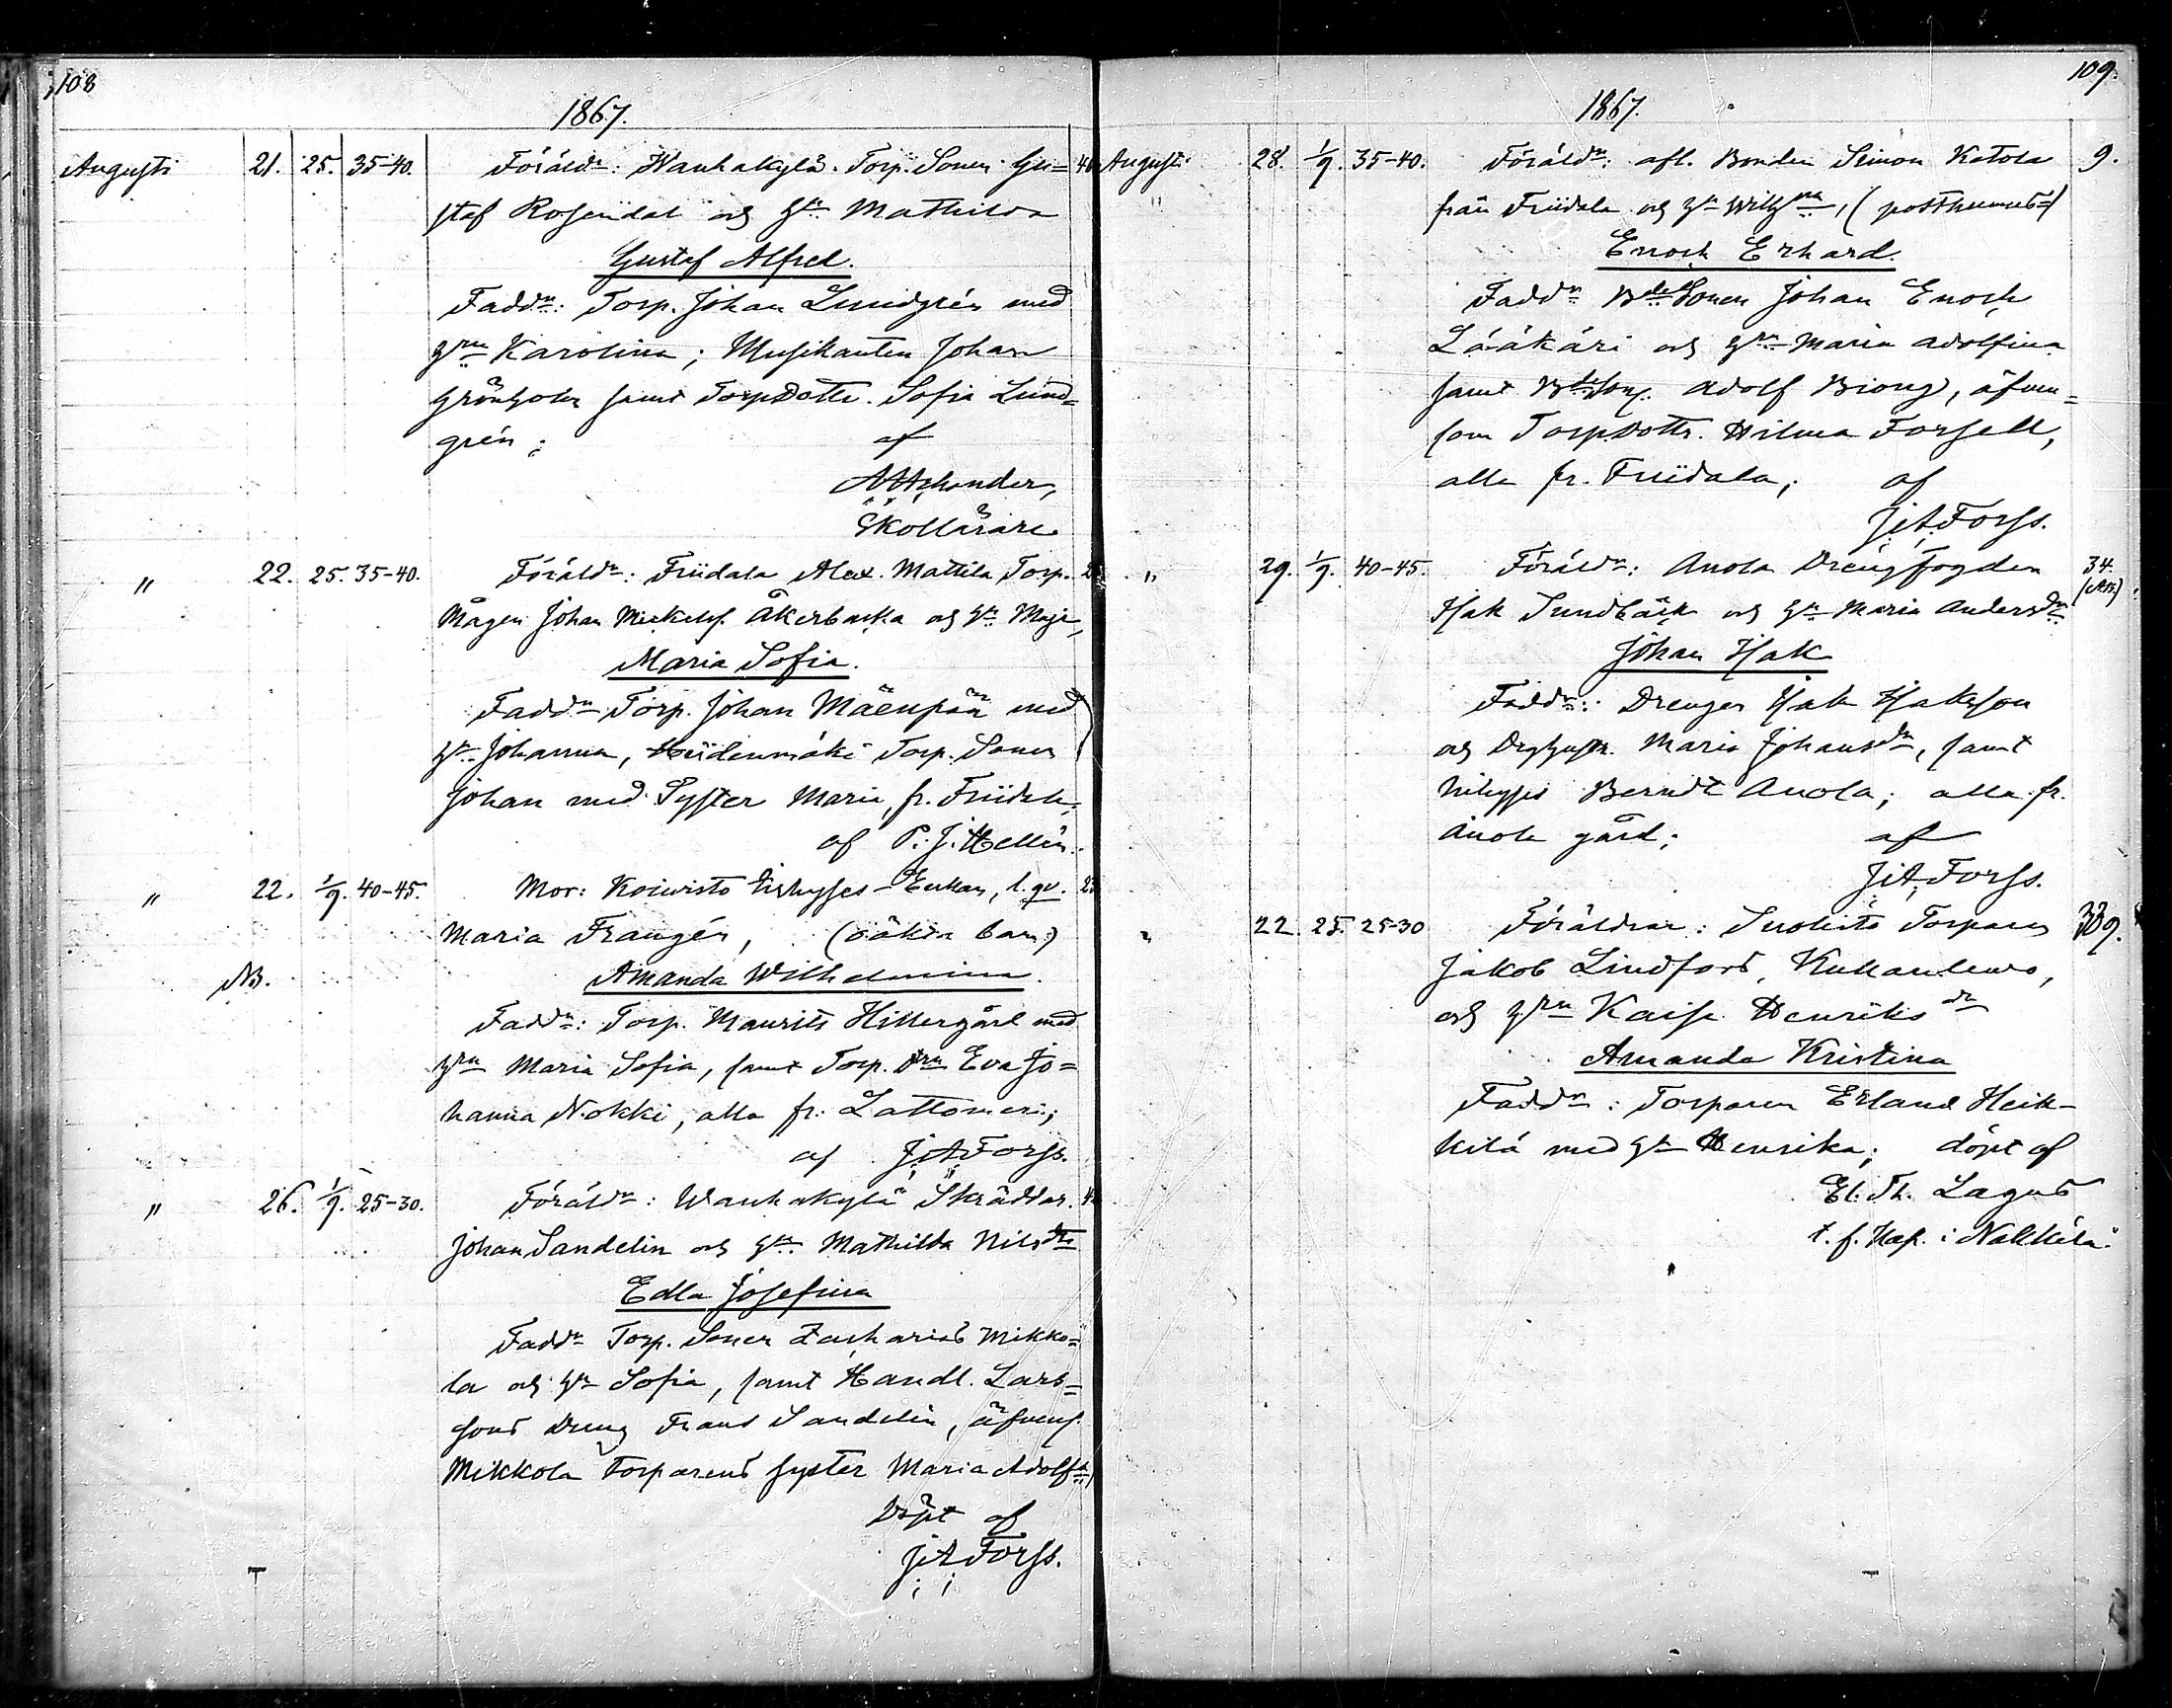 108
1867.
Augusti 21. 25. 35-40. Föräldr: Wanhakylä Torp. Sonen Gu=
staf Rosendal och H:u Mathilda
Gustaf Alfred.
Faddr: Torp. Johan Lundgrén med
hru Karolina; Musikanten Johan
Grönholm samt TorpDottr. Sofia Lund=
grén; af
Skollärare
" 22. 25. 35-40. Föräldr: Friidala Alex. Mattila Torp.
Mågen Johan Mickelss. Åkerbacka och Hu Maja,
Maria Sofia.
Faddr Torp. Johan Mäenpää med
Hu Johanna, Hiidenmäki Torp. Sonen
Johan med Syster Maria, fr. Friidala;
af P. J. Hellén.
" 22. 1/9. 40-45. Mor: Koivisto Enkan, l. qv.
Maria Frangén, (oäkta barn)
NB. Amanda Wilhelmina.
Faddr: Torp. Maurits Hillergård med
hru Maria Sofia, samt Torp. Dru Eva Jo=
hanna Nokki, alla fr. Lattomeri;
af J:A:Forss.
" 26. 1/9. 25-30. Föräldr: Wanhakylä Skräddar.
Johan Sandelin och Hu. Mathilda Nilsdtr
Edla Josefina
Faddr Torp. Sonen Zacharias Mikko=
la och Hu Sofia, samt Handl. Lars=
sons Dreng Frans Sandelin, äfvens.
Mikkola Torparens syster Maria Adolfa,
Döpt af
J:A:Forss.
109.
1867.
Augusti 28. 1/9. 35-40. Föräldr: afl. Bonden Simon Katola 9.
från Friidala och Hu Wilhna, (posthumus)
Enoch Erhard.
Faddr BdeSonen Johan Enoch
Lääkäri och Hru Maria Adolfina
samt BdeSon. Adolf Biong, äfven=
som TorpDottr. Hilma Forsell,
alla fr. Friidala; af
J:A:Forss.
" 29. 1/9. 40-45. Föräldr: Anola Drengfogden 34.
Isak Sundbäck och Hu Maria Andersdtr
Johan Isak
Faddr: Drengen Isak Isaksson
och Maria Johansdr, samt
Berndt Anola; alla fr.
Anola gård; af
J:A:Forss.
" 22. 25. 25-30 Föräldrar: Suolisto Torparen 339.
Jakob Lindfors, Kullanlewo,
och hru Kaisa Henriksdr
Amanda Kristina
Faddr: Torparen Erland Heik-
kilä med Hu Henrika; döpt af
El. Th. Lagus
t. f. Kap. i Nakkila.